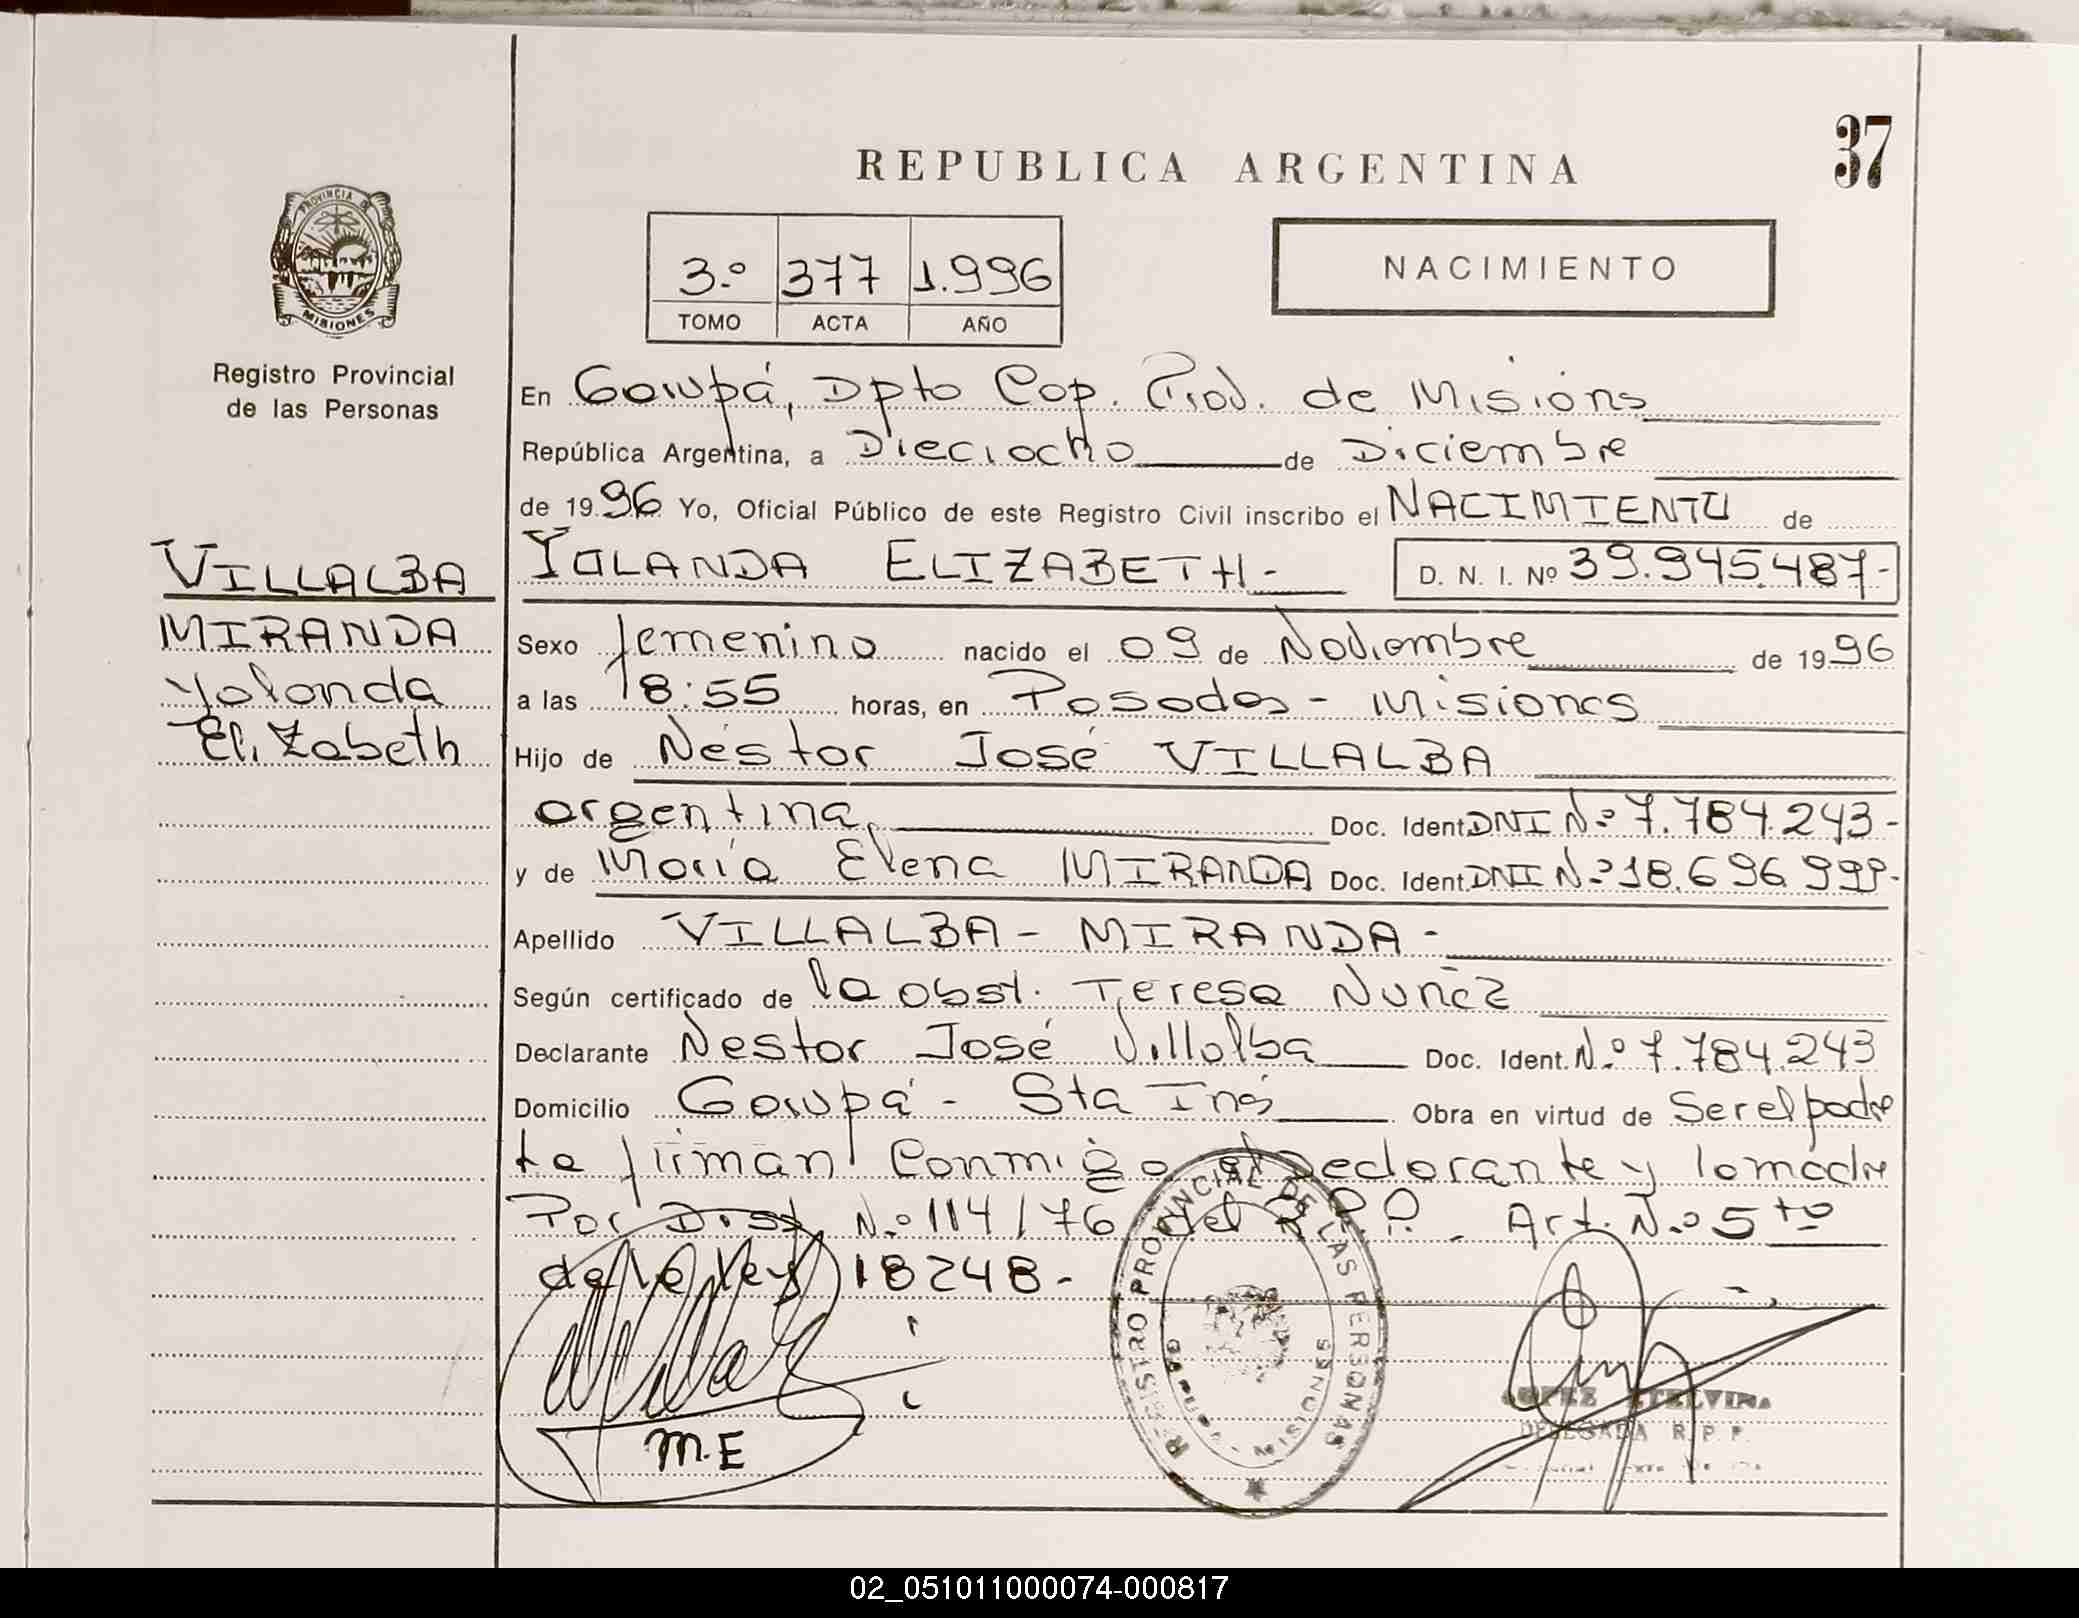 37
REPUBLICA ARGENTINA
PROVINCIA DE
MISIONES
3.º 377 1.996
TOMO ACTA AÑO
NACIMIENTO
Registro Provincial
de las Personas
En Garupá, Dpto Cap. Prov. de Misions
República Argentina, a Dieciocho de Diciembre
de 1996 Yo, Oficial Público de este Registro Civil inscribo el NACIMIENTO de
VILLALBA
MIRANDA
Yolanda
Elizabeth
YOLANDA ELIZABETH- D. N. I. Nº 39.945.487-
Sexo femenino nacido el 09 de Noviembre de 1996
a las 18:55 horas, en Posadas - Misiones
Hijo de Néstor José VILLALBA
argentina, Doc. Ident. DNI N.º 7.784.243-
y de María Elena MIRANDA Doc. Ident. DNI N.º 18.696.999-
Apellido VILLALBA - MIRANDA -
Según certificado de la obst. Teresa Nuñez
Declarante Nestor José Villalba Doc. Ident. N.º 7.784.243
Domicilio Garupá - Sta Inés Obra en virtud de Ser el padre
te firman Conmigo el Declarante y la madre
Por Disp. N.º 114/76 del R.P.P. Art. N.º 5to
de la ley 18248-
M.E
REGISTRO PROVINCIAL DE LAS PERSONAS
GARUPA - MISIONES
LOPEZ ETELVINA
DELEGADA R. P. P.
02_051011000074-000817